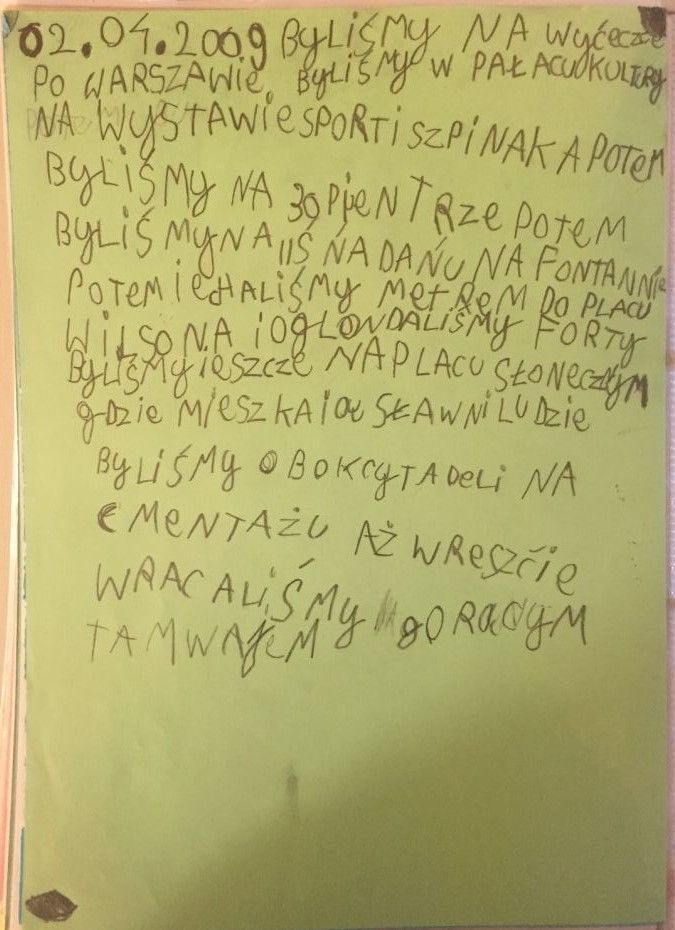 02.04.2009 BYLIŚMY NA wyćeczce
PO WARSZAWIE, BYLIŚMY W PAŁACUKULTURY
NA WYSTAWIE SPORT i SZPINAK A POTEM
BYLIŚMY NA 30 PijeNTRZe POTEM
BYLIŚMY NA IIŚŃADAŃU NA FONTANNie
POTEM iECHALIŚMY METREM DO PLACU
WILSONA i OGLONDALIŚMY FORTY
BYLIŚMY iESZCZE NA PLACU SŁONECZNYM
gDZie MiESZKAiOŁ SŁAWNi LUDZIE
BYLIŚMY OBOK CYTADELi NA
CMENTAŻU AŻ WRESZĆIE
WRACALIŚMY gORĄCYM
TAMWAJEM